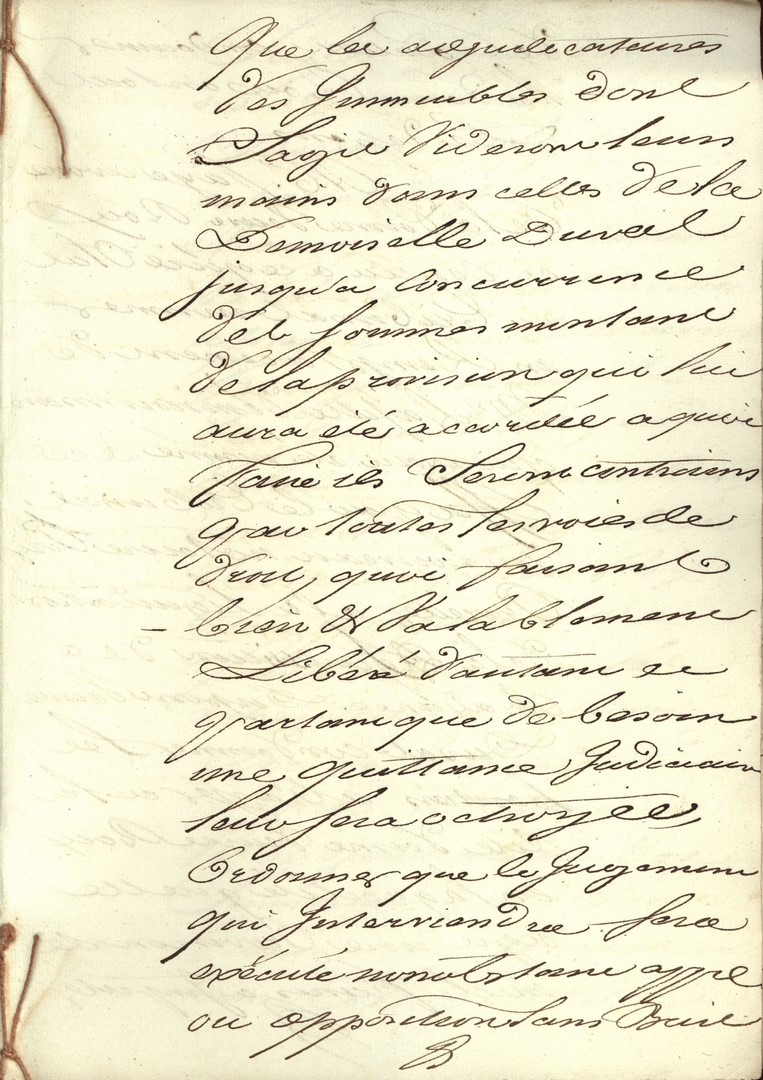 Que les adjudicataires
des Immeubles dont
Sagit Videront leurs
mains dans celles de la
Demoiselle Duval
jusqu'a Concurrence
des sommes montant
de la provision qui lui
aura été accordée a quoi
faire ils Seront contraints
par toutes les voies de
droit, quoi faisant
bien & Valablement
Libéré d'autant et
partant que de besoin
une quittance Judiciaire
leur sera octroyée,
Ordonner que le Jugement
qui Interviendra sera
exécuté nonobstant appel
ou opposition sans